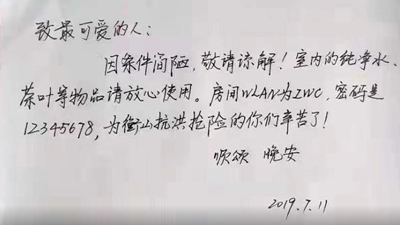 致最可爱的人：
因条件简陋，敬请谅解！室内的纯净水、
茶叶等物品请放心使用。房间WLAN为ZWC，密码是
12345678，为衡山抗洪抢险的你们辛苦了！
顺颂 晚安
2019.7.11